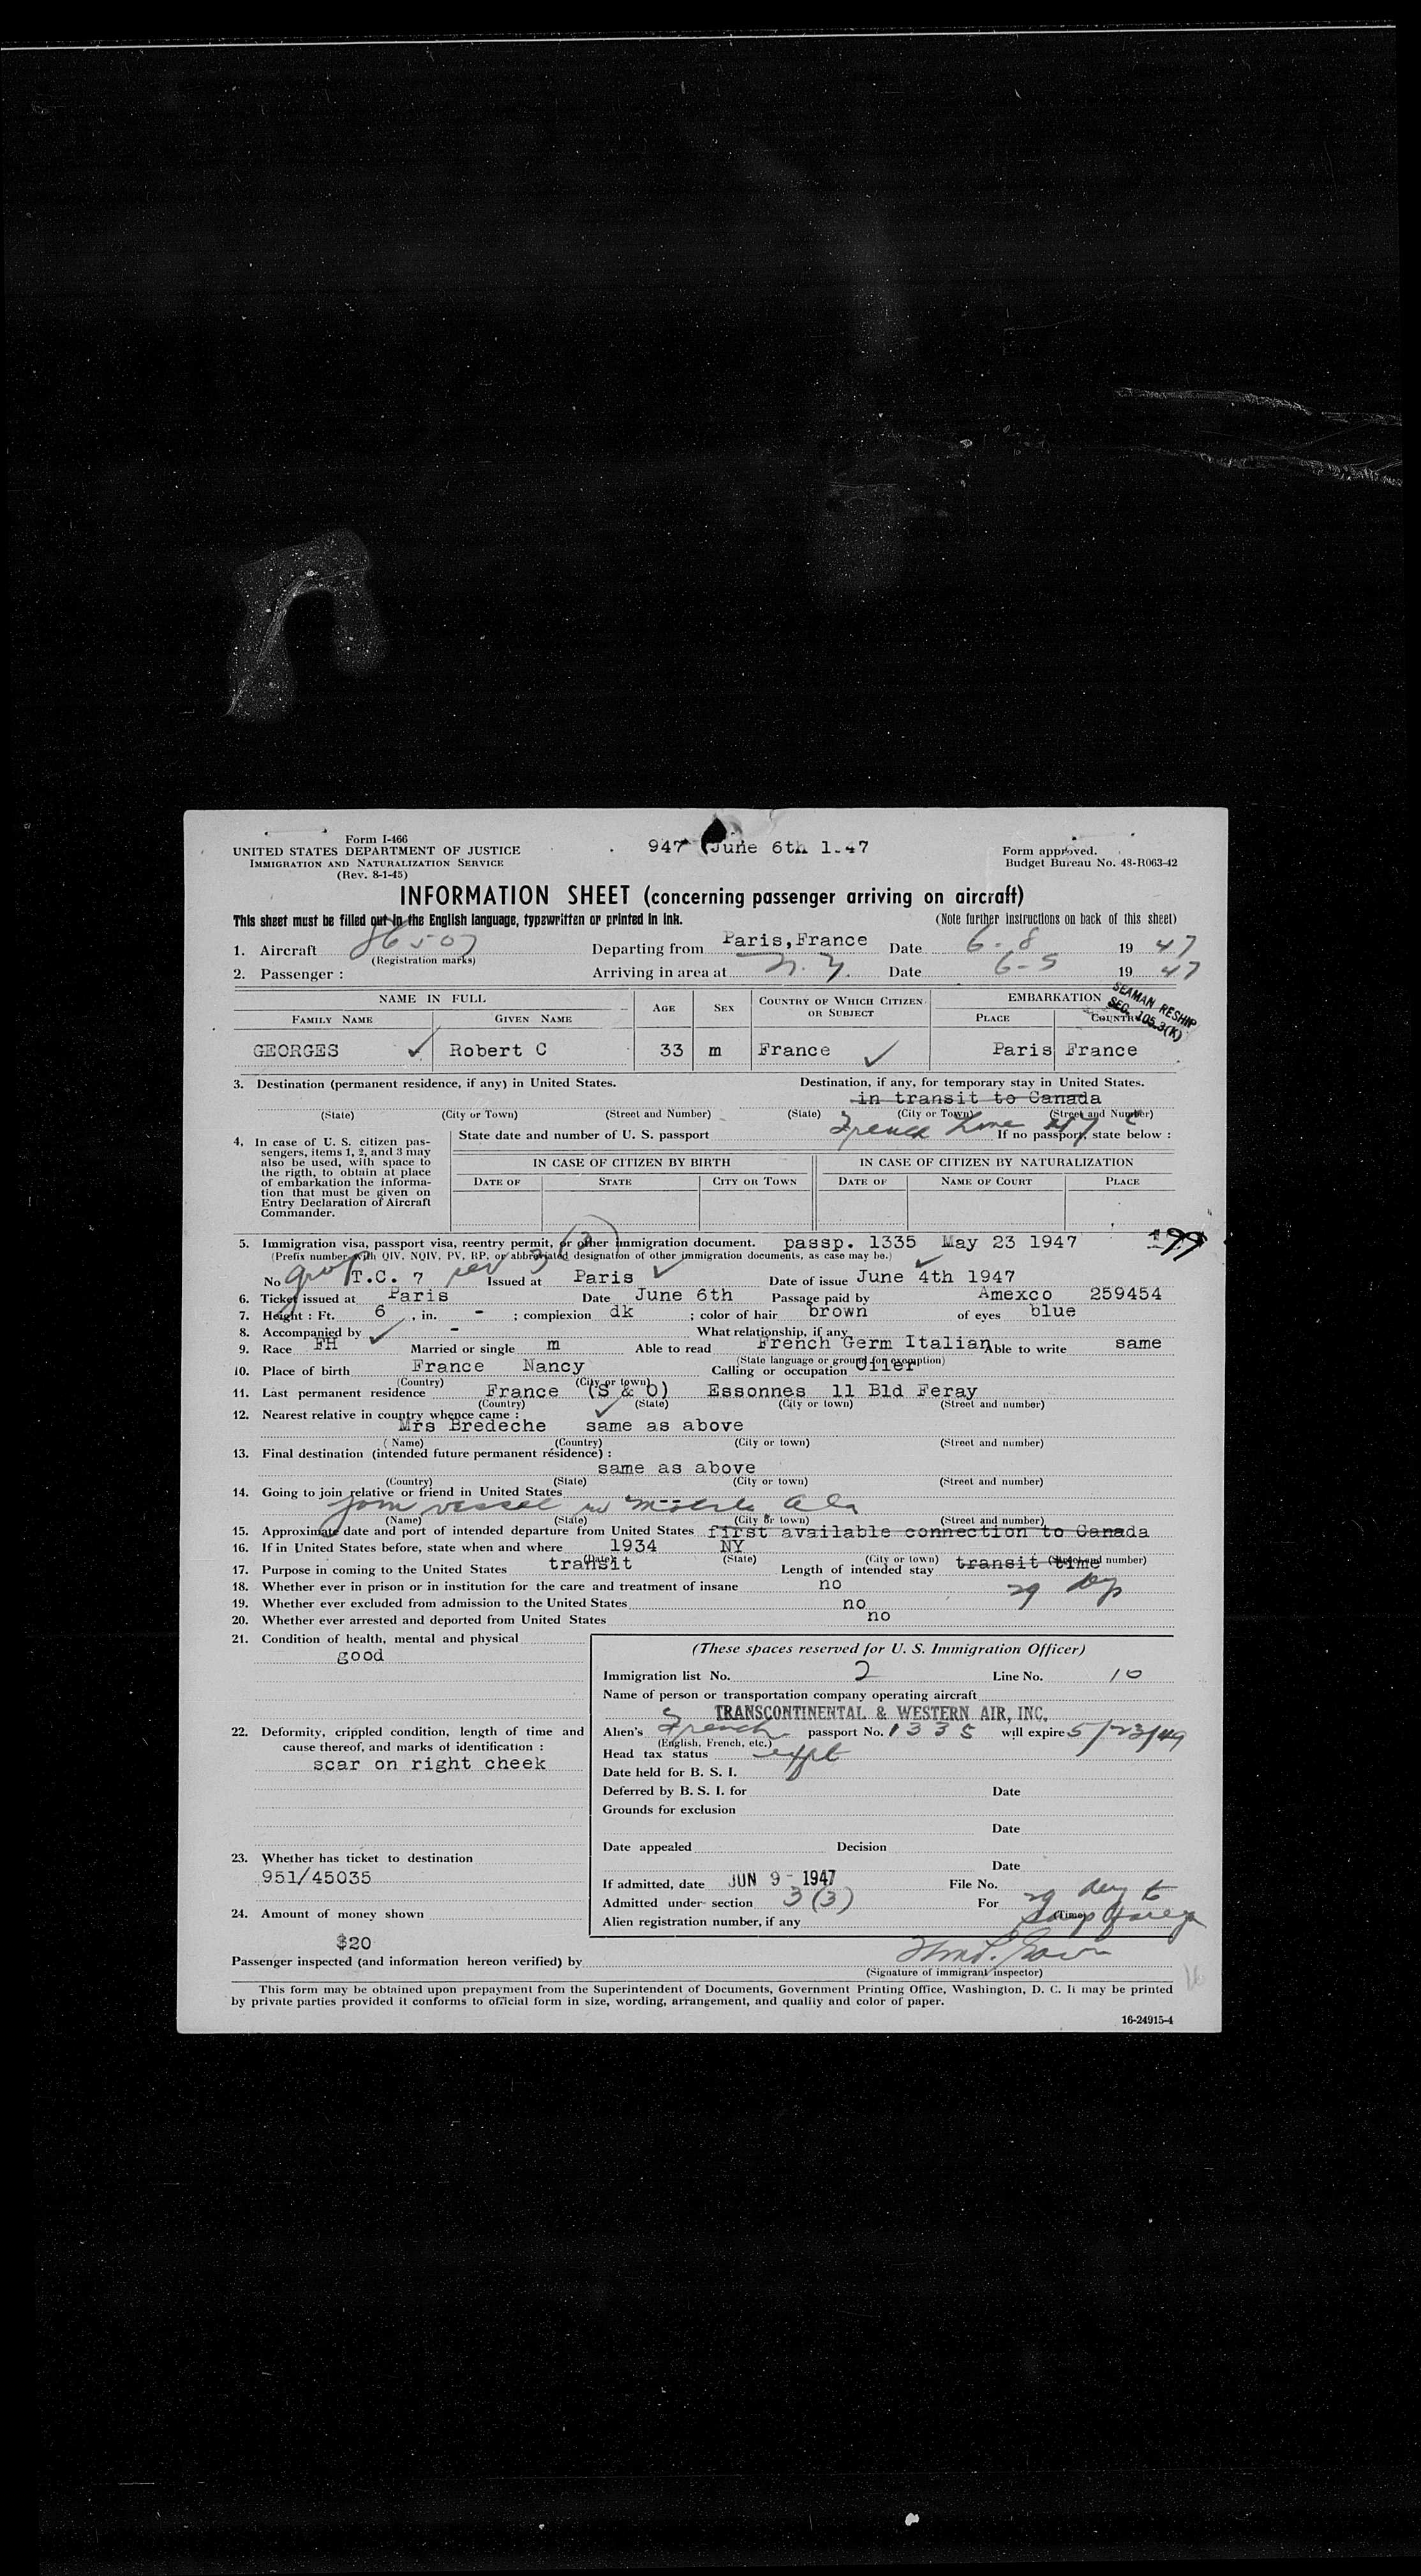 Form I-466
UNITED STATES DEPARTMENT OF JUSTICE
IMMIGRATION AND NATURALIZATION SERVICE
(Rev. 8-1-45)
947 June 6th 1947
Form approved.
Budget Bureau No. 43-R063-42
INFORMATION SHEET (concerning passenger arriving on aircraft)
This sheet must be filled out in the English language, typewritten or printed in ink. (Note further instructions on back of this sheet)
1. Aircraft 86507 Departing from Paris, France Date 6-8 19 47
(Registration marks)
2. Passenger : Arriving in area at N.Y. Date 6-9 19 47
SEAMAN RESHIP
SEC. 105.3(K)
NAME IN FULL AGE SEX COUNTRY OF WHICH CITIZEN OR SUBJECT EMBARKATION
FAMILY NAME GIVEN NAME PLACE COUNTRY
GEORGES Robert C 33 m France Paris France
3. Destination (permanent residence, if any) in United States. Destination, if any, for temporary stay in United States.
in transit to Canada
(State) (City or Town) (Street and Number) (State) (City or Town) (Street and Number)
French Line
4. In case of U. S. citizen pas-
sengers, items 1, 2, and 3 may
also be used, with space to
the rigth, to obtain at place
of embarkation the informa-
tion that must be given on
Entry Declaration of Aircraft
Commander.
State date and number of U. S. passport If no passport, state below :
IN CASE OF CITIZEN BY BIRTH IN CASE OF CITIZEN BY NATURALIZATION
DATE OF STATE CITY OR TOWN DATE OF NAME OF COURT PLACE
5. Immigration visa, passport visa, reentry permit, or other immigration document. passp. 1335 May 23 1947
(Prefix number with QIV, NQIV, PV, RP, or abbreviated designation of other immigration documents, as case may be.)
No T.C. 7 3 (3) Issued at Paris Date of issue June 4th 1947
6. Ticket issued at Paris Date June 6th Passage paid by Amexco 259454
7. Height : Ft. 6 , in. - ; complexion dk ; color of hair brown of eyes blue
8. Accompanied by - What relationship, if any
9. Race FH Married or single m Able to read French Germ Italian Able to write same
(State language or ground for exemption)
10. Place of birth France Nancy Calling or occupation Oiler
(Country) (City or town)
11. Last permanent residence France (S & O) Essonnes 11 Bld Feray
(Country) (State) (City or town) (Street and number)
12. Nearest relative in country whence came :
Mrs Bredeche same as above
(Name) (Country) (City or town) (Street and number)
13. Final destination (intended future permanent résidence) :
same as above
(Country) (State) (City or town) (Street and number)
14. Going to join relative or friend in United States ---
join vessel in Mobile Ala
(Name) (State) (City or town) (Street and number)
15. Approximate date and port of intended departure from United States first available connection to Canada
16. If in United States before, state when and where 1934 NY
(Date) (State) (City or town) (Street and number)
17. Purpose in coming to the United States transit Length of intended stay transit time
29 days
18. Whether ever in prison or in institution for the care and treatment of insane no
19. Whether ever excluded from admission to the United States no
20. Whether ever arrested and deported from United States no
21. Condition of health, mental and physical
good
22. Deformity, crippled condition, length of time and
cause thereof, and marks of identification :
scar on right cheek
23. Whether has ticket to destination
951/45035
24. Amount of money shown
$20
(These spaces reserved for U. S. Immigration Officer)
Immigration list No. 2 Line No. 10
Name of person or transportation company operating aircraft
TRANSCONTINENTAL & WESTERN AIR, INC.
Alien's French passport No. 1335 will expire 5/23/49
(English, French, etc.)
Head tax status expt
Date held for B. S. I.
Deferred by B. S. I. for Date
Grounds for exclusion
Date
Date appealed Decision
Date
If admitted, date JUN 9 - 1947 File No.
Admitted under section 3 (3) For 29 days to
(Time)
Alien registration number, if any
Passenger inspected (and information hereon verified) by
(Signature of immigrant inspector)
This form may be obtained upon prepayment from the Superintendent of Documents, Government Printing Office, Washington, D. C. It may be printed
by private parties provided it conforms to official form in size, wording, arrangement, and quality and color of paper.
16-24915-4